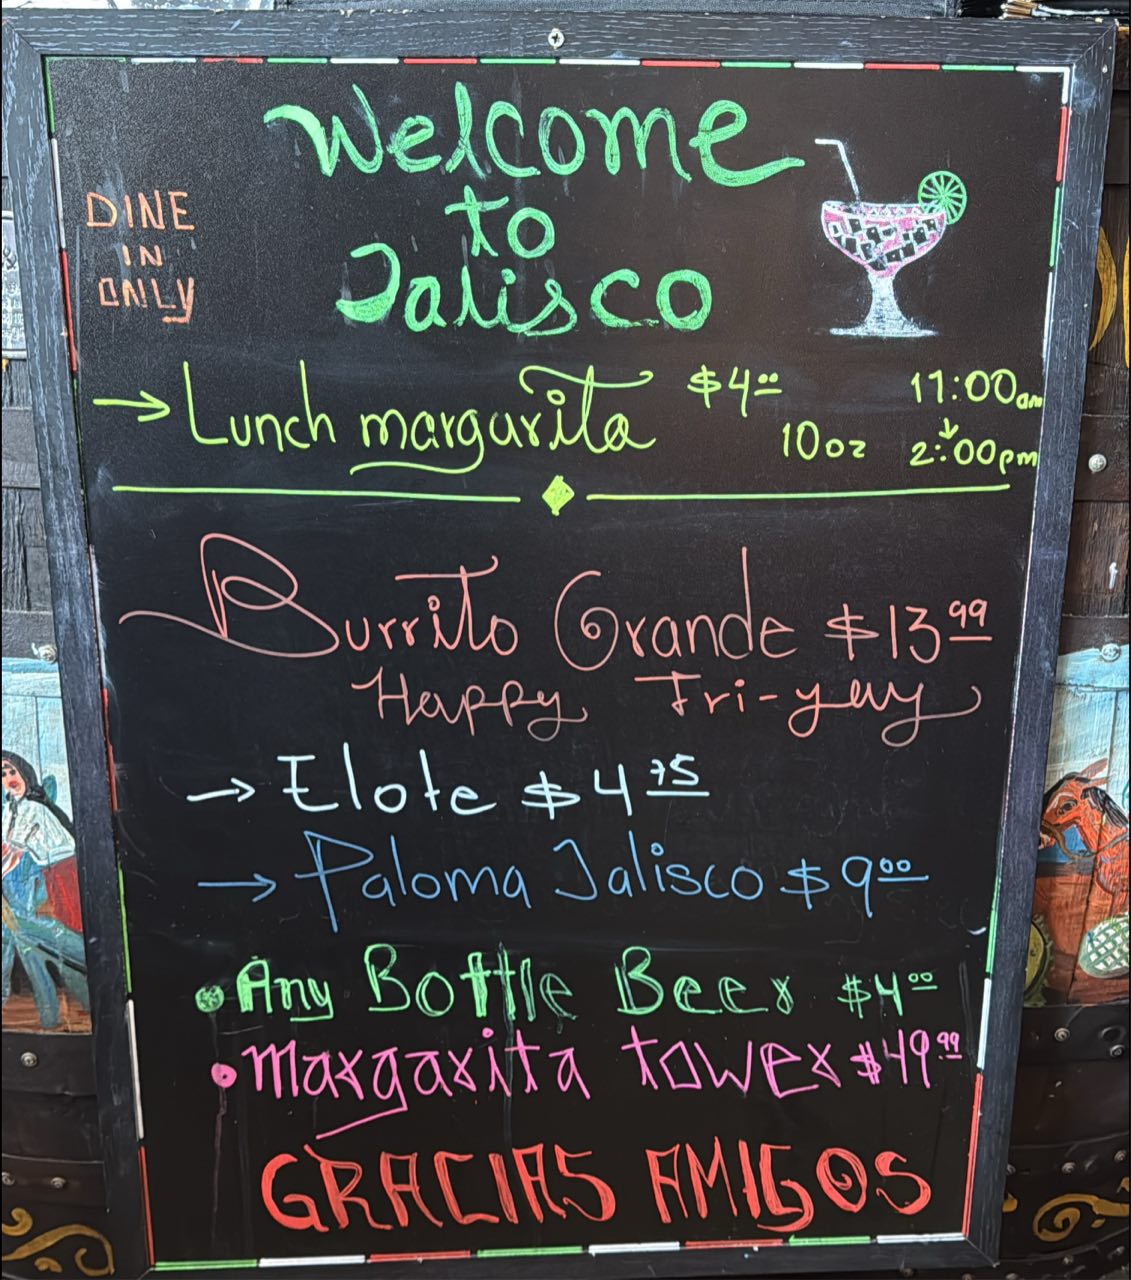 Welcome
to
Jalisco
DINE
IN
ONLY
→ Lunch margarita $4.00 10oz 11:00am ↓ 2:00pm
Burrito Grande $13.99
Happy Fri-yay
→ Elote $4.75
→ Paloma Jalisco $9.00
• Any Bottle Beer $4.00
• Margarita tower $49.99
GRACIAS AMIGOS